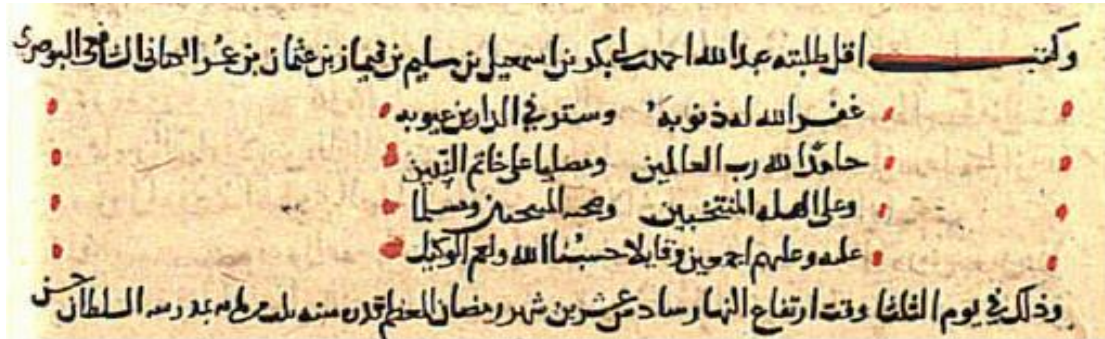 وكتب اقل طلبته عبد الله احمد بن ابي بكر بن اسمعيل بن سليم بن قيماز بن عثمان بن عمر الكنانى الشافعى البوصيرى
غفر الله له ذنوبه وستر في الدارين عيوبه
حامدا لله رب العالمين ومصليا على خاتم النبيين
وعلى اهله المنتخبين وصحبه ومسلما
عليه وعليهم اجمعين وقايلا حسبنا الله ونعم الوكيل
وذلك في يوم الثلثا وقت ارتفاع النهار سادس عشرين شهر رمضان المعظم قدره سنه بمدرسه السلطان حسن